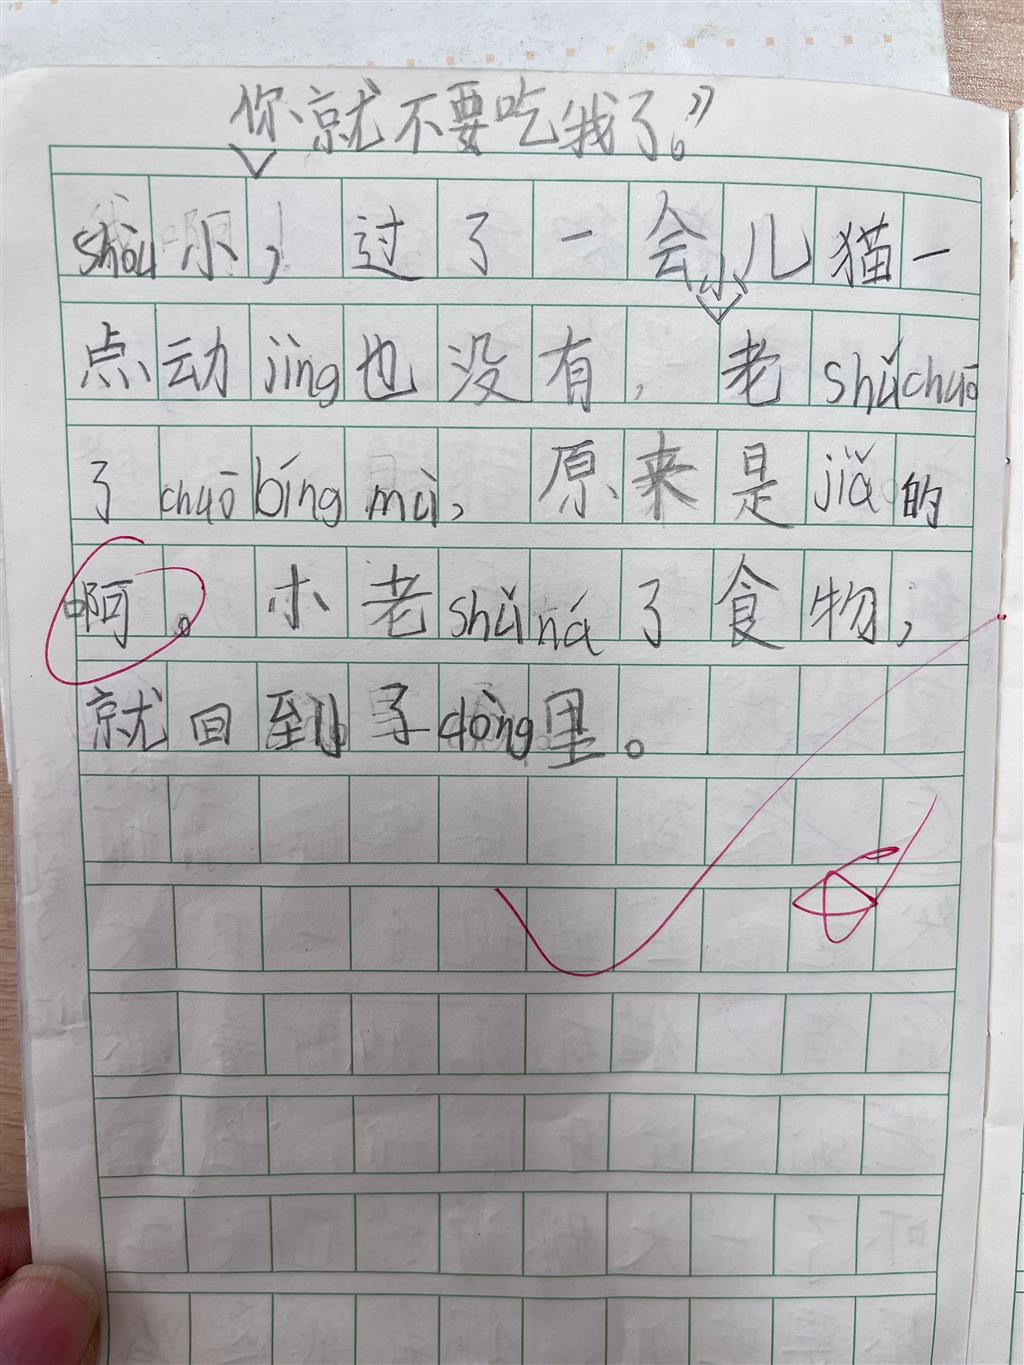 你就不要吃我了。”
shòu小，过了一会儿猫一
小
点动jìng也没有，老shǔchuō
了chuōbíngmù，原来是jiǎ的
啊。小老shǔná了食物，
就回到了dòng里。